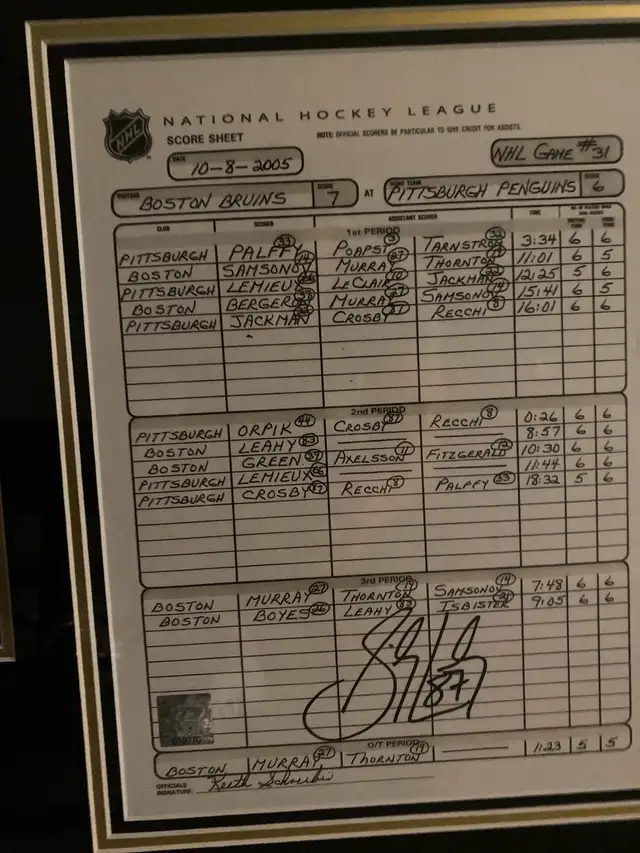 NHL
NATIONAL HOCKEY LEAGUE
SCORE SHEET
NOTE: OFFICIAL SCORERS BE PARTICULAR TO GIVE CREDIT FOR ASSISTS.
DATE 10-8-2005
NHL GAME #31
VISITORS BOSTON BRUINS SCORE 7 AT HOME TEAM PITTSBURGH PENGUINS SCORE 6
CLUB SCORER ASSISTANT SCORER TIME
1st PERIOD
PITTSBURGH PALFFY 33 POAPST 3 TARNSTROM 3:34 6 6
BOSTON SAMSONOV 14 MURRAY 27 THORNTON 19 11:01 6 5
PITTSBURGH LEMIEUX 66 LECLAIR 10 JACKMAN 12:25 5 6
BOSTON BERGERON MURRAY 27 SAMSONOV 14 15:41 6 5
PITTSBURGH JACKMAN CROSBY 87 RECCHI 8 16:01 6 6
2nd PERIOD
PITTSBURGH ORPIK 44 CROSBY 87 RECCHI 8 0:26 6 6
BOSTON LEAHY 83 8:57 6 6
BOSTON GREEN AXELSSON 11 FITZGERALD 10:30 6 6
PITTSBURGH LEMIEUX 66 11:44 6 6
PITTSBURGH CROSBY 87 RECCHI 8 PALFFY 33 18:32 5 6
3rd PERIOD
BOSTON MURRAY 27 THORNTON 19 SAMSONOV 14 7:48 6 6
BOSTON BOYES 26 LEAHY 83 ISBISTER 9:05 6 6
87
O/T PERIOD
BOSTON MURRAY 27 THORNTON 19 1:23 5 5
OFFICIALS SIGNATURE: